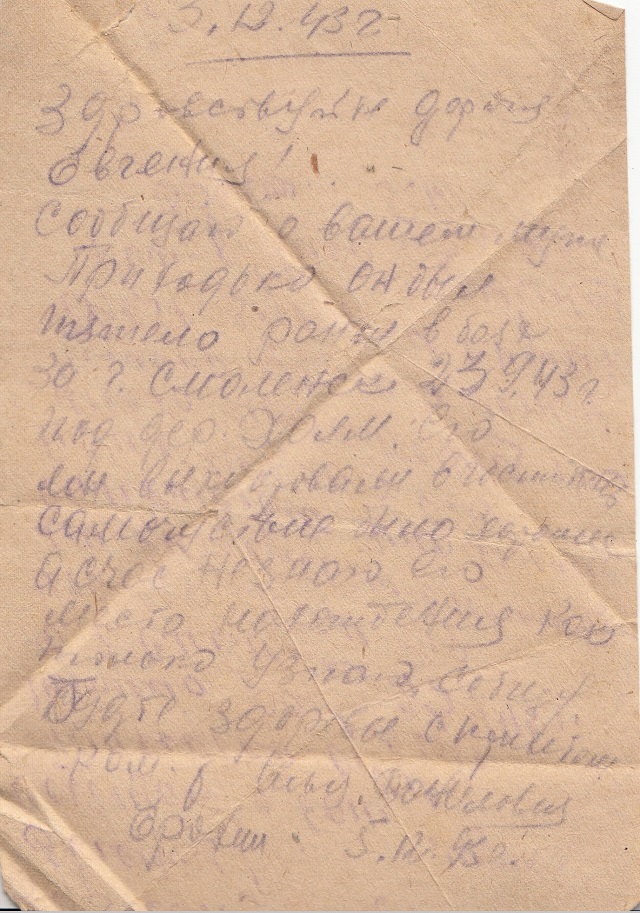 5.12.43 г
Здравствуйте дорогая
Евгения!
Сообщаю о вашем муже
Приходько он был
тяжело ранен в боях
за г. Смоленск 23.9.43 г.
под дер. Холм. Его
мы эвакуировали в госпиталь
самочуствие было хорошее
а счас незнаю его
место нахождения как
только узнаю сообщу
Будте здоровы с приветом
ком.
5.12.43 г.